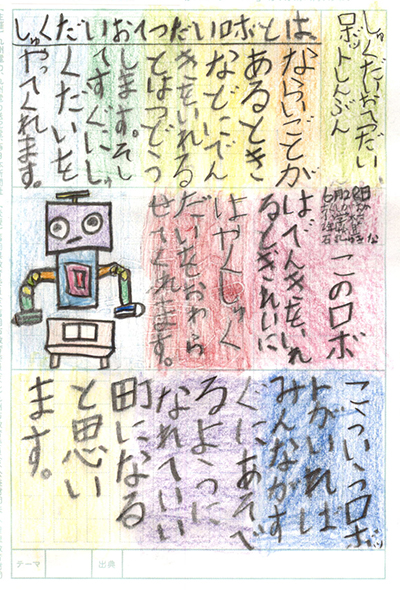 しゅくだいおてつだい
ロボットしんぶん
しゅくだいおてつだいロボとは、
ならいごとが
あるとき
などにでん
きをいれる
とはつどう
します。そし
てすぐにしゅ
くだいを
やってくれます。
6月28日
このロボ
はでんきをいれ
るときれいに
はやくしゅく
だいをおわら
せてくれます。
こういうロボッ
トがいれば
みんながす
ぐにあそべ
るように
なれていい
町になる
と思い
ます。
テーマ
出典